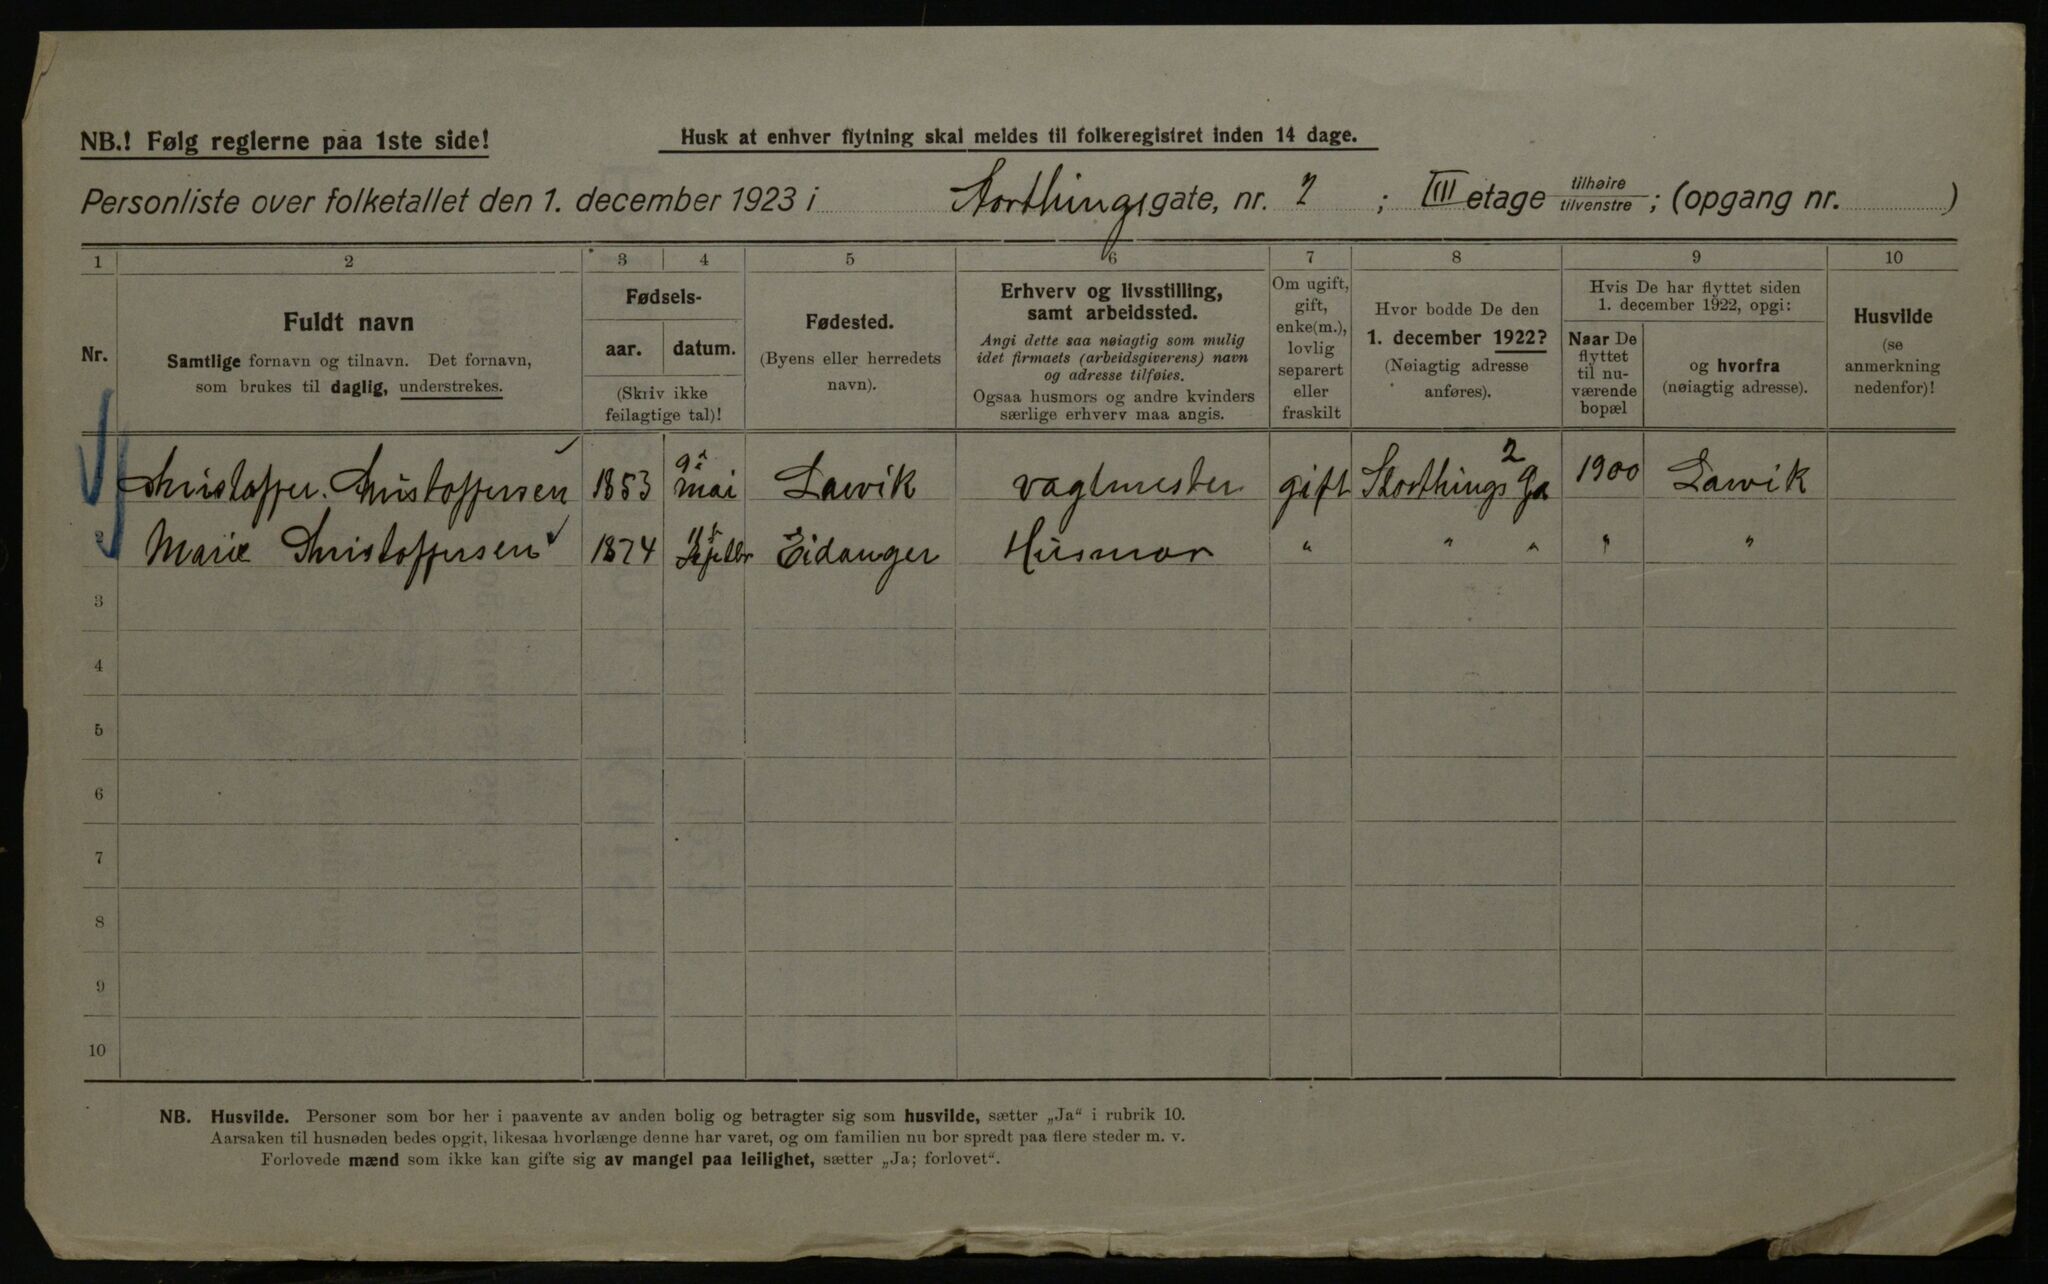 NB.! Følg reglerne paa 1ste side!
Husk at enhver flytning skal meldes til folkeregistret inden 14 dage.
Personliste over folketallet den 1. december 1923 i Storthingsgate, nr. 2 ; III etage tilhøire tilvenstre ; (opgang nr. )
1 2 3 4 5 6 7 8 9 10
Nr.
Fuldt navn
Samtlige fornavn og tilnavn. Det fornavn,
som brukes til daglig, understrekes.
Fødsels-
aar. datum.
(Skriv ikke
feilagtige tal)!
Fødested.
(Byens eller herredets
navn).
Erhverv og livsstilling,
samt arbeidssted.
Angi dette saa nøiagtig som mulig
idet firmaets (arbeidsgiverens) navn
og adresse tilføies.
Ogsaa husmors og andre kvinders
særlige erhverv maa angis.
Om ugift,
gift,
enke(m.),
lovlig
separert
eller
fraskilt
Hvor bodde De den
1. december 1922?
(Nøiagtig adresse
anføres).
Hvis De har flyttet siden
1. december 1922, opgi:
Naar De
flyttet
til nu-
værende
bopæl
og hvorfra
(nøiagtig adresse).
Husvilde
(se
anmerkning
nedenfor)!
Christoffer. Christoffersen 1853 9 mai Larvik vagtmester gift Storthings Ga 2 1900 Larvik
2 Marie Christoffersen 1874 Septbr Eidanger Husmor " " " " "
3
4
5
6
7
8
9
10
NB. Husvilde. Personer som bor her i paavente av anden bolig og betragter sig som husvilde, sætter „Ja“ i rubrik 10.
Aarsaken til husnøden bedes opgit, likesaa hvorlænge denne har varet, og om familien nu bor spredt paa flere steder m. v.
Forlovede mænd som ikke kan gifte sig av mangel paa leilighet, sætter „Ja; forlovet“.